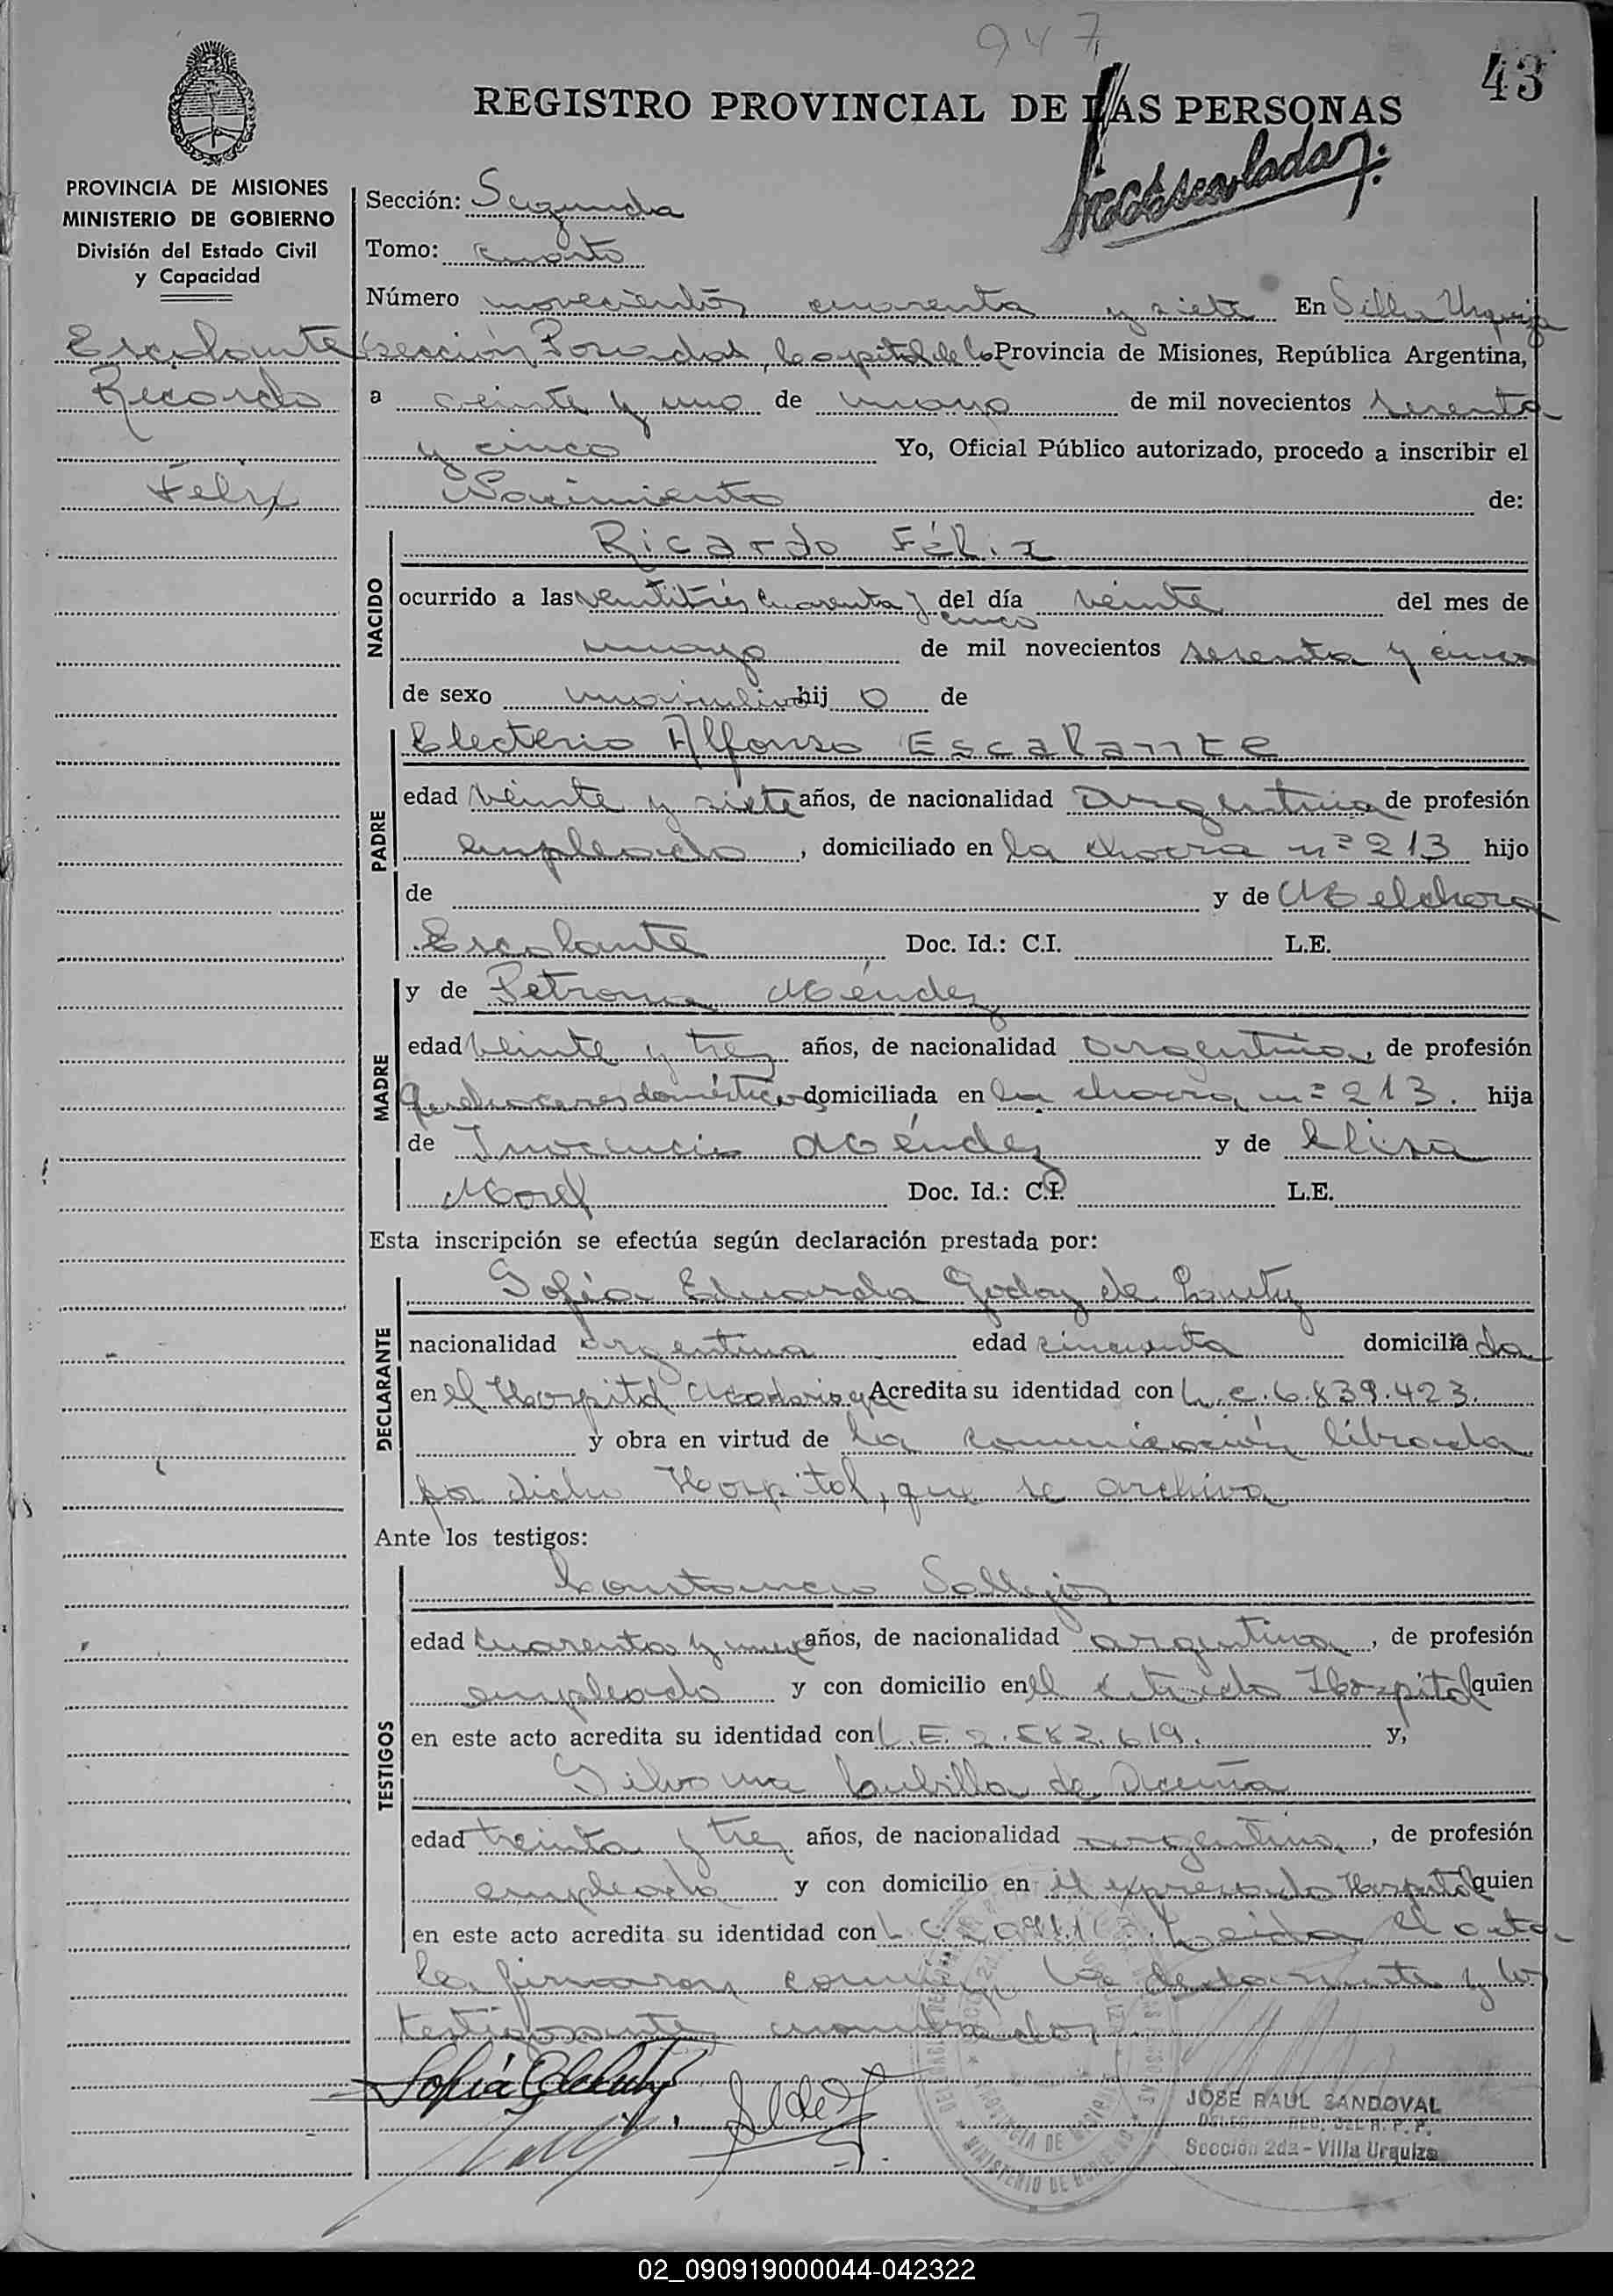 947
43
REGISTRO PROVINCIAL DE LAS PERSONAS
PROVINCIA DE MISIONES
MINISTERIO DE GOBIERNO
División del Estado Civil
y Capacidad
Escalante
Ricardo
Félix
Sección: Segunda
Tomo: Cuarto
Número novecientos cuarenta y siete En Villa Urquiza
sección Posadas, Capital de la Provincia de Misiones, República Argentina,
a veinte y uno de mayo de mil novecientos sesenta
y cinco Yo, Oficial Público autorizado, procedo a inscribir el
Nacimiento de:
NACIDO
Ricardo Félix
ocurrido a las ventitrés cuarenta y cinco del día veinte del mes de
mayo de mil novecientos sesenta y cinco
de sexo masculino hijo de
PADRE
Electerio Alfonso Escalante
edad veinte y siete años, de nacionalidad argentina de profesión
empleado, domiciliado en la chacra nº 213 hijo
de y de Melchora
Escalante Doc. Id.: C.I. L.E.
MADRE
y de Petrona Méndez
edad veinte y tres años, de nacionalidad argentina, de profesión
quehaceres domésticos domiciliada en la chacra nº 213. hija
de Inocencio Méndez y de Elisa
Morel Doc. Id.: C.I. L.E.
Esta inscripción se efectúa según declaración prestada por:
DECLARANTE
Sofía Eduarda Godoy de
nacionalidad argentina edad cincuenta domiciliada
en el Hospital Madariaga Acredita su identidad con L.C. 6.839.423.
y obra en virtud de la comunicación librada
por dicho Hospital, que se archiva
Ante los testigos:
TESTIGOS
Constancio Vallejos
edad cuarenta y nueve años, de nacionalidad argentina, de profesión
empleado y con domicilio en el citado Hospital quien
en este acto acredita su identidad con L.E. 2.582.619. y,
Silvana de Acuña
edad treinta y tres años, de nacionalidad argentina, de profesión
empleada y con domicilio en el expresado Hospital quien
en este acto acredita su identidad con L.C. Leida el acta
la firmaron conmigo la declarante y los
testigos ante nombrados.
JOSE RAUL SANDOVAL
Sección 2da - Villa Urquiza
02_090919000044-042322